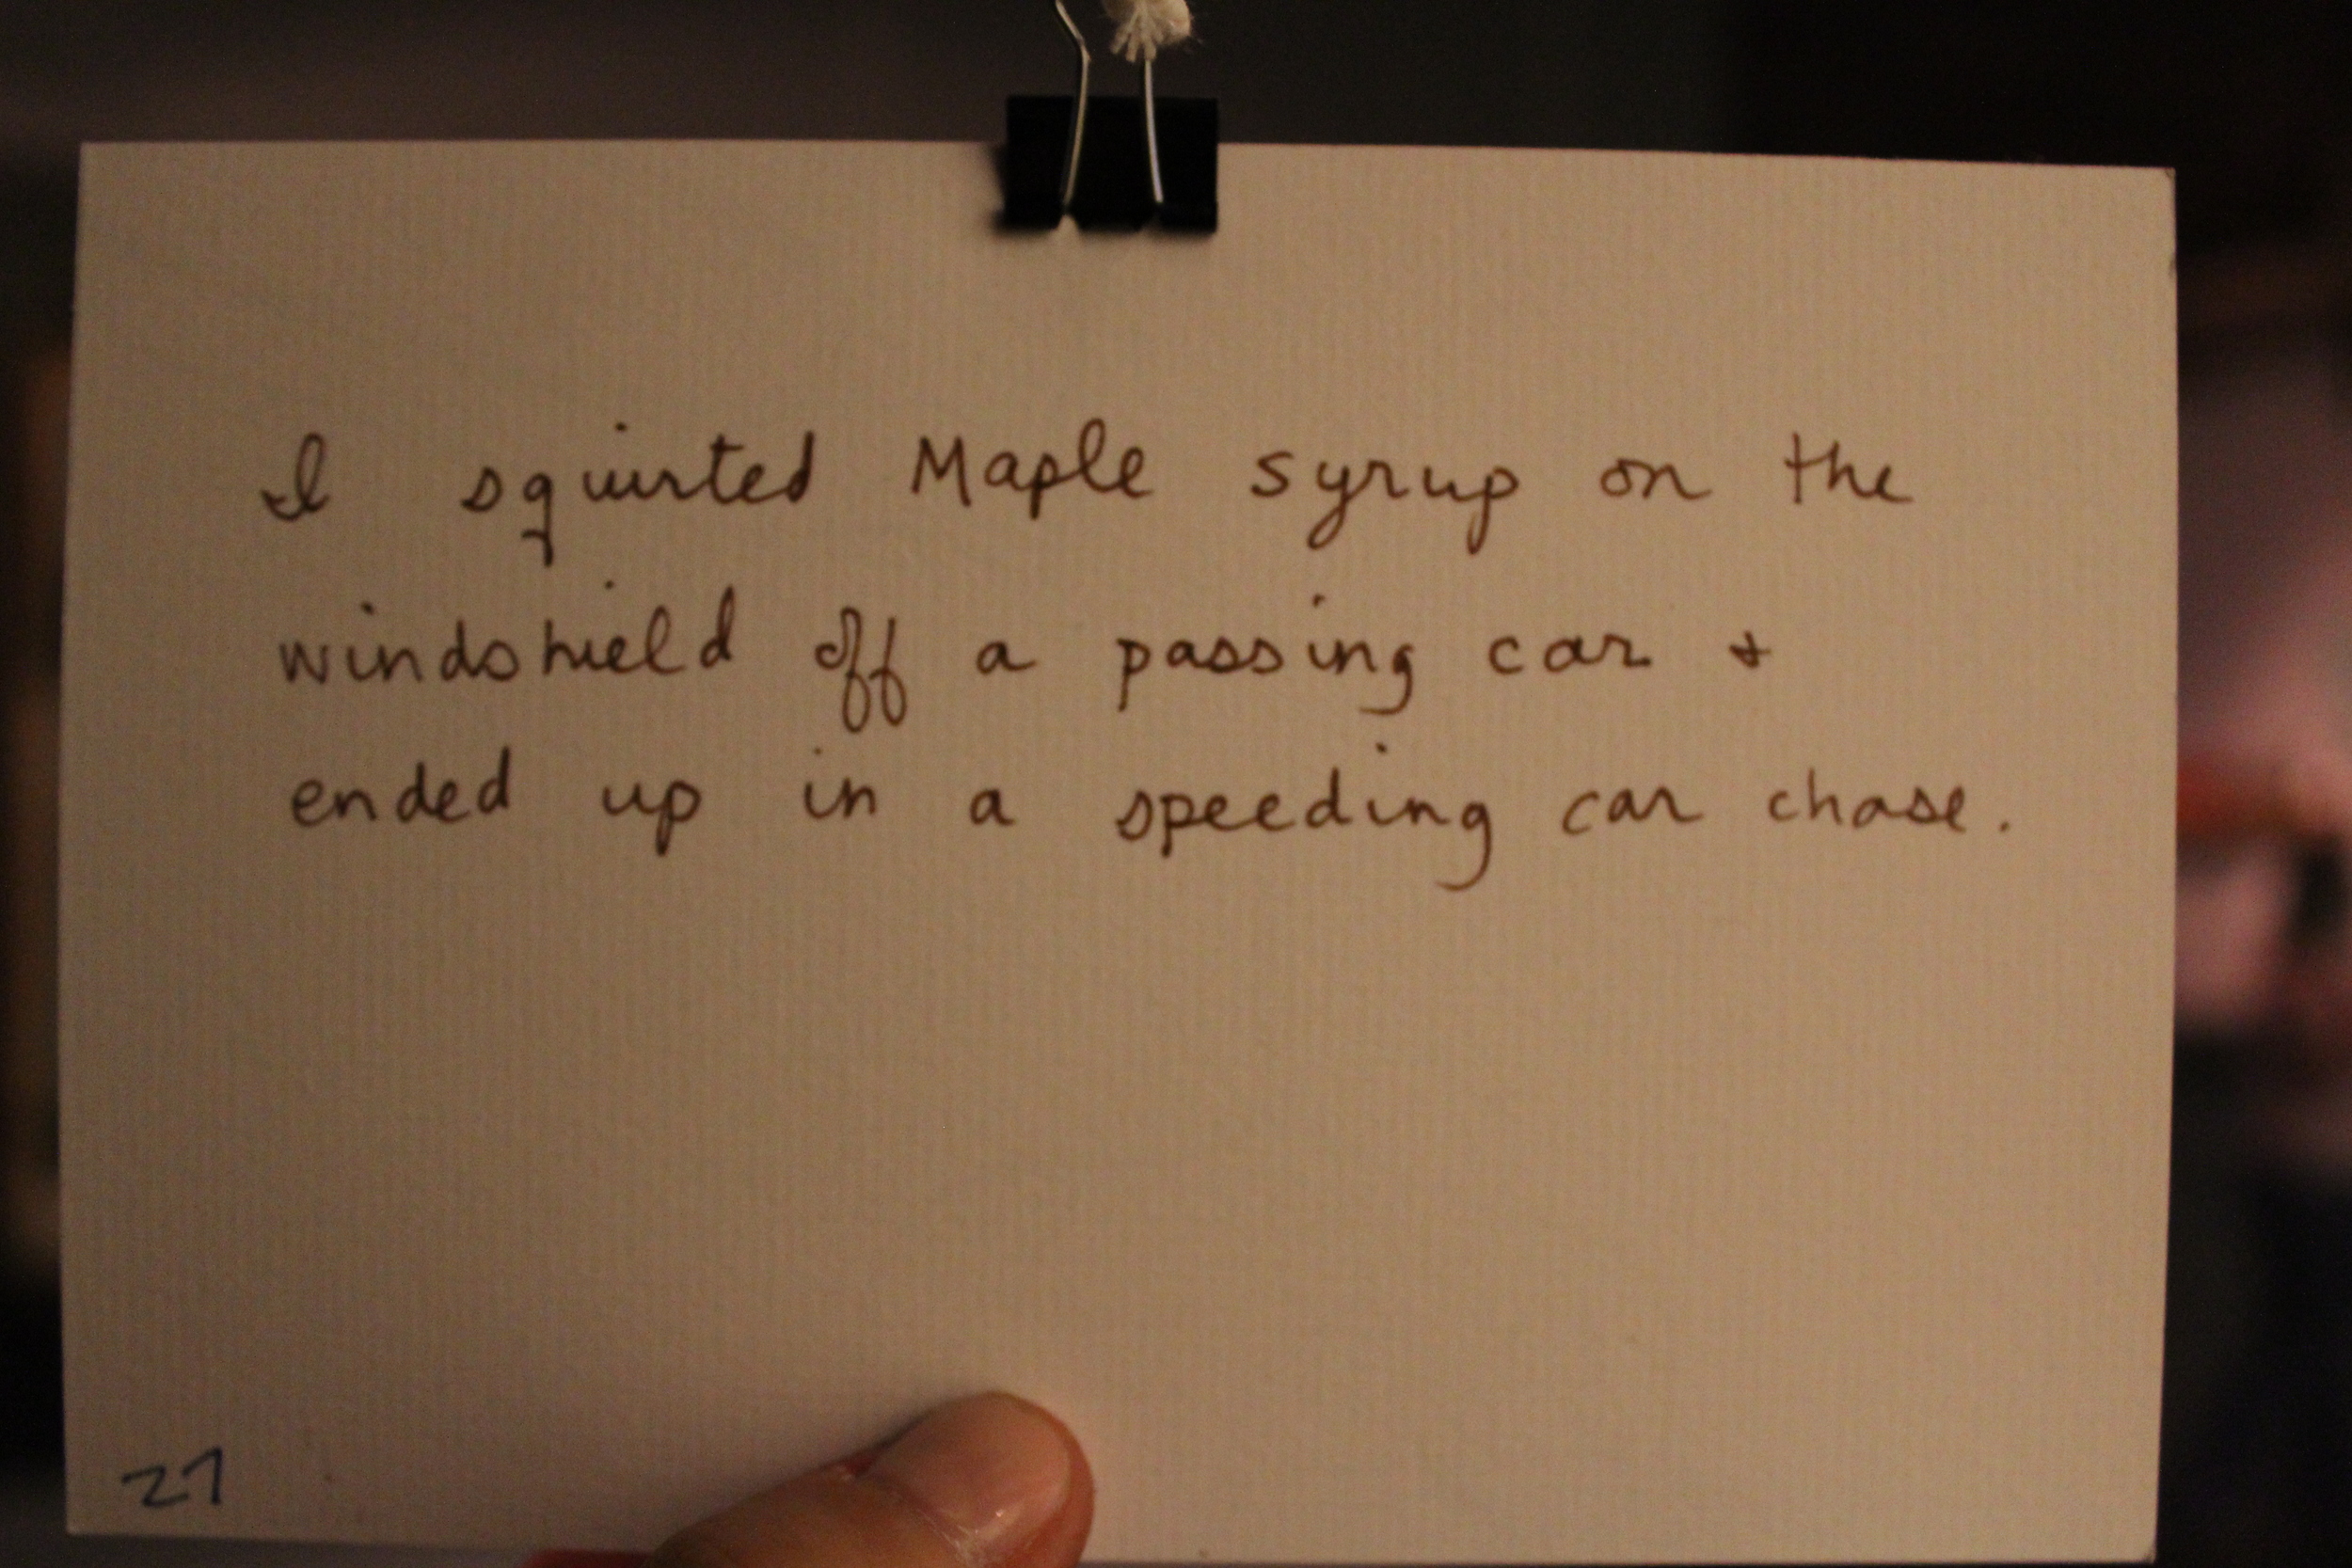 I squirted Maple syrup on the
windshield off a passing car +
ended up in a speeding car chase.
27